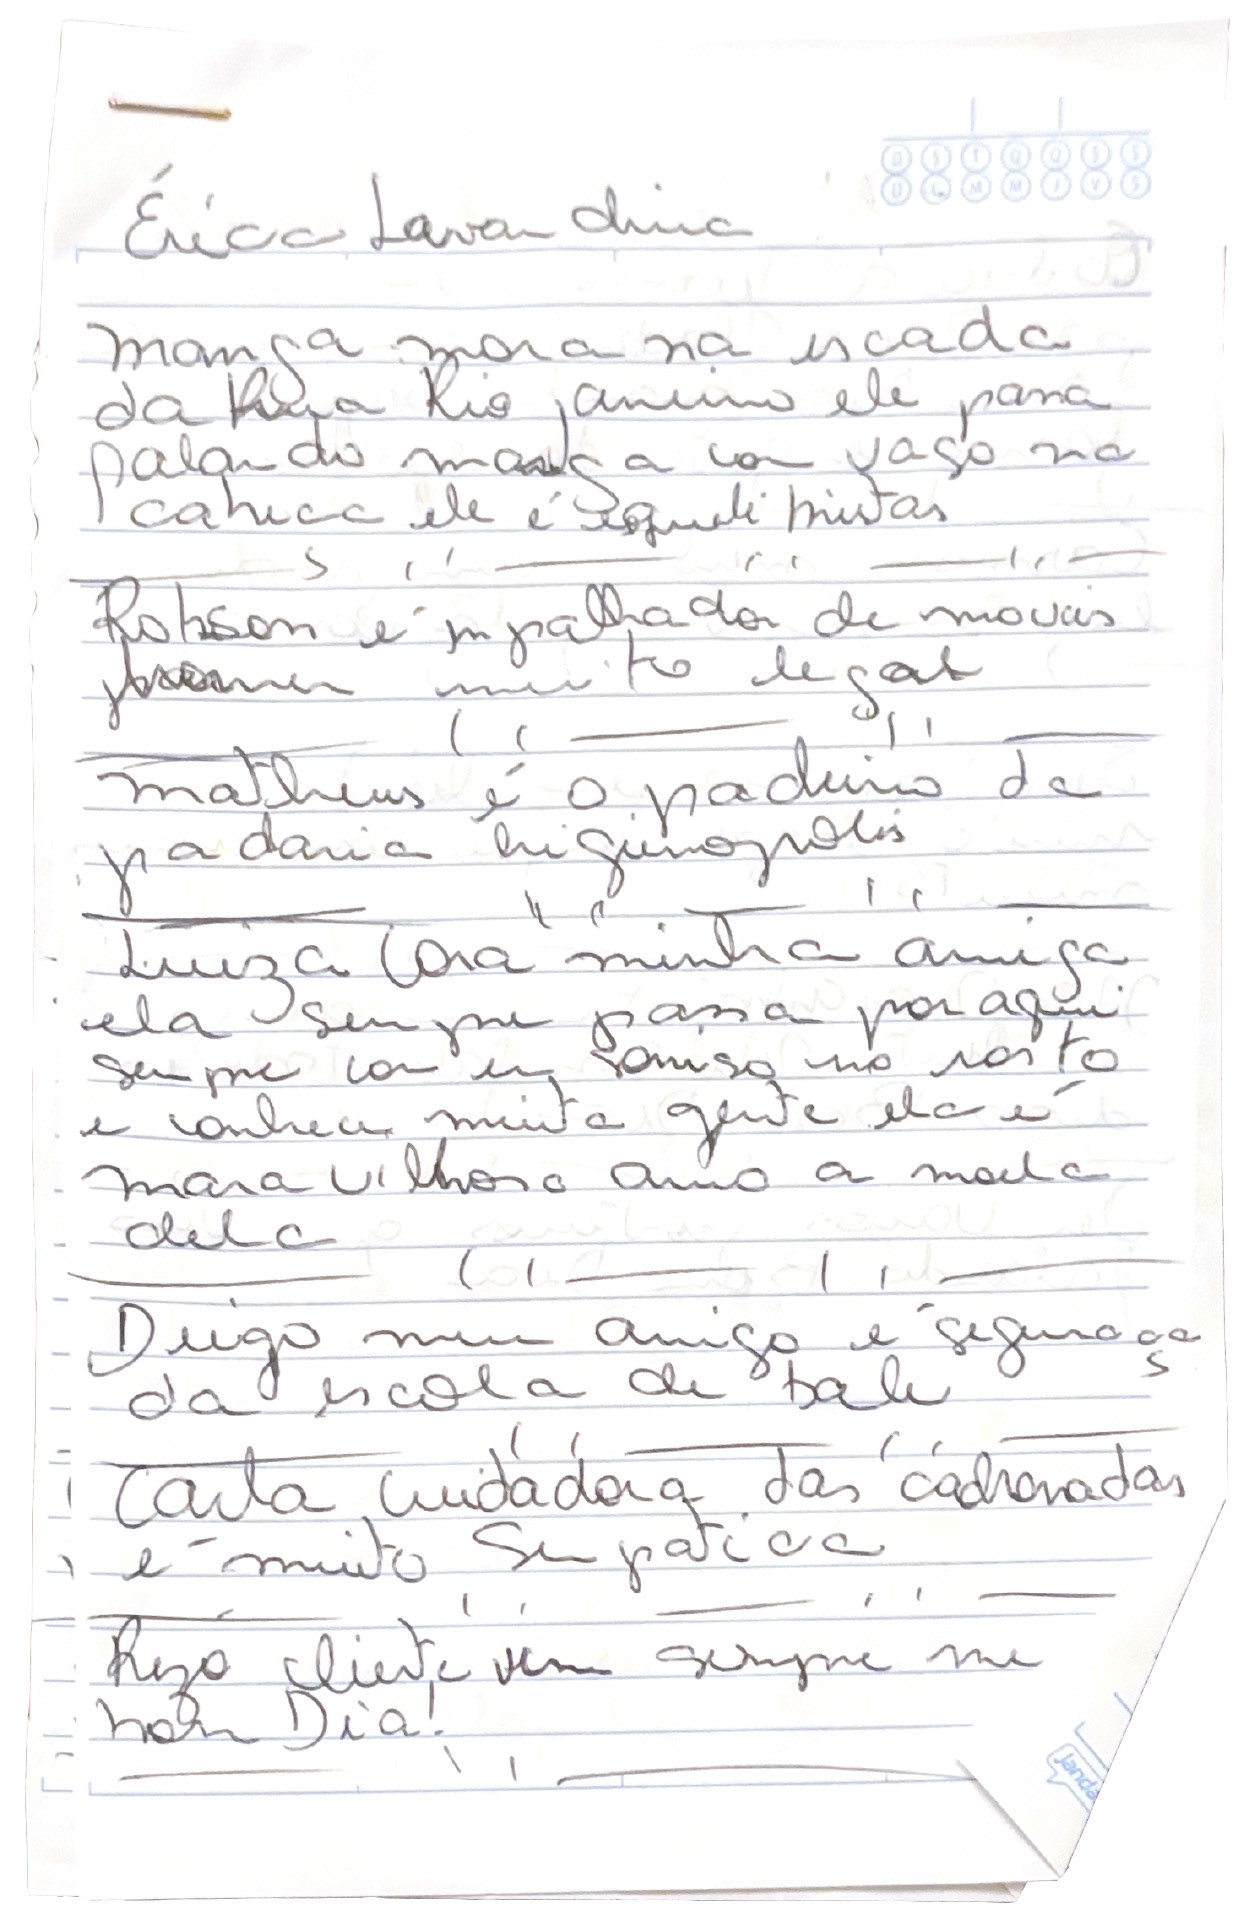 D S T Q Q S S
D L M M J V S
Érica Lavandina
Mança mora na escada
da Rio janeiro ele para
falando mança con vaso na
cabeca ele é equeli bristas
Robson é inpalhador de movéis
muito legal
Matheus é o padeiro da
padaria higienopolis
Luiza Cora minha amiga
ela sempre passa por aqui
sempre con en soriso no rosto
e conhece muita gente ela é
maravilhosa amo a moda
dela
Deigo meu amigo é seguraça
da escola de bale
Carla cuidadora das cachoradas
é muito Senpatica
cliente vem sempre me
bon Dia!
janda